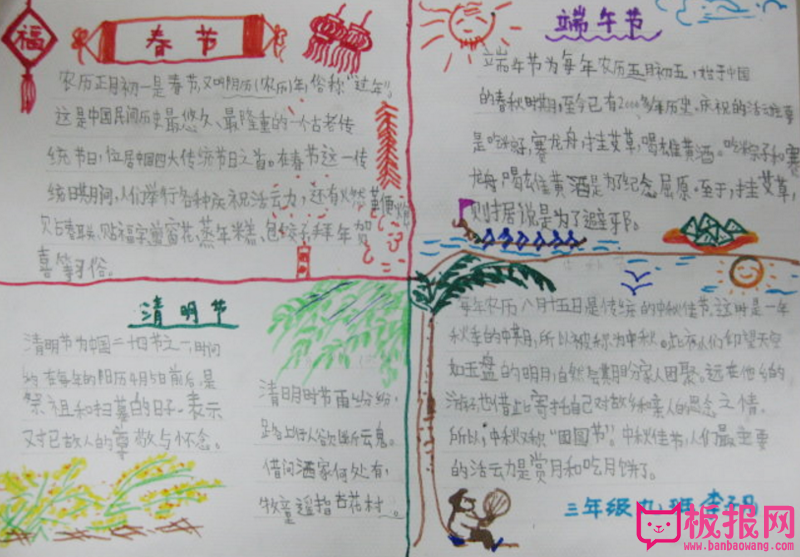 福
春节
农历正月初一是春节,又叫阴历(农历)年,俗称"过年"。
这是中国民间历史最悠久、最隆重的一个古老传
统节日,位居中国四大传统节日之首。在春节这一传
统日期间,人们举行各种庆祝活动,还有燃
鞭炮
贴福字
窗花、蒸年糕、包饺子、拜年
贺
喜等习俗。
端午节
端午节为每年农历五月初五,始于中国
的春秋时期,至今已有2000多年历史。庆祝的活动主要
是吃粽子,赛龙舟,挂艾草,喝雄黄酒。吃粽子和赛
龙舟,喝雄黄酒是为了纪念屈原。至于,挂艾草,
则据说是为了避邪。
清明节
清明节为中国二十四节之一,时间
约在每年的阳历4月5日前后,是
祭祖和扫墓的日子。表示
对已故人的尊敬与怀念。
清明时节雨纷纷,
路上行人欲断魂。
借问酒家何处有,
牧童遥指杏花村。
每年农历八月十五日是传统的中秋佳节。这时是一年
秋季的中期,所以被称为中秋。此夜人们仰望天空
如玉盘的明月,自然会期盼家人团聚。远在他乡的
游子,也借此寄托自己对故乡和亲人的思念之情。
所以,中秋又称"团圆节"。中秋佳节,人们最主要
的活动是赏月和吃月饼了。
三年级
班
李
板报网
www.banbaowang.com